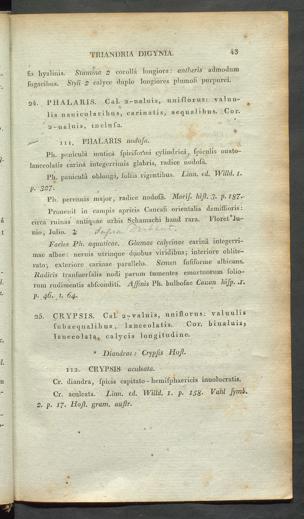 TRIANDRIA DIGYNIA. 43
ſis hyalinis. Stamina 2 corollâ longiora: antheris admodum
fugacibus. Styli 2 calyce duplo longiores plumoſi purpurei.
24. PHALARIS. Cal. 2-valuis, uniflorus: valuu-
lis nauicularibus, carinatis, aequalibus. Cor.
2-ualuis, incluſa.
111. PHALARIS nodoſa.
Ph. paniculâ muticâ ſpiciformi cylindricâ, ſpiculis ouato-
lanceolatis carinâ integerrimis glabris, radice nodoſâ.
Ph. paniculâ oblongâ, foliis rigentibus. Linn. ed. Willd. 1.
p. 327.
Ph. perennis major, radice nodoſâ. Moriſ. hiſt. 3. p. 187.
Prouenit in campis apricis Caucaſi orientalis demiſſioris:
circa ruinas antiquae urbis Schamachi haud rara. Floret Iu-
nio, Iulio. ♃ Derbent.
Facies Ph. aquaticae. Glumae calycinae carinâ integerri-
mae albae: neruis utrinque duobus viridibus; interiore oblite-
rato, exteriore carinae parallelo. Semen fuſiforme albicans.
Radicis tranſuerſalis nodi parum tumentes emortuorum folio-
rum rudimentis abſconditi. Affinis Ph. bulboſae Cauan hiſp. 1.
p. 46. t. 64.
25. CRYPSIS. Cal. 2-valuis, uniflorus: valuulis
ſubaequalibus, lanceolatis. Cor. biualuis;
lanceolata, calycis longitudine.
* Diandrae: Crypſis Hoſt.
112. CRYPSIS aculeata.
Cr. diandra, ſpicis capitato-hemiſphaericis inuolucratis.
Cr. aculeata. Linn. ed. Willd. 1. p. 158. Vahl ſymb.
2. p. 17. Hoſt. gram. auſtr.